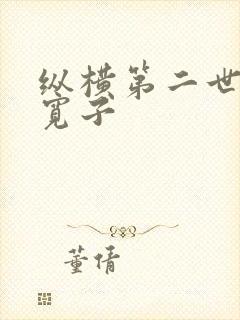 纵横第二世
宽子
董倩